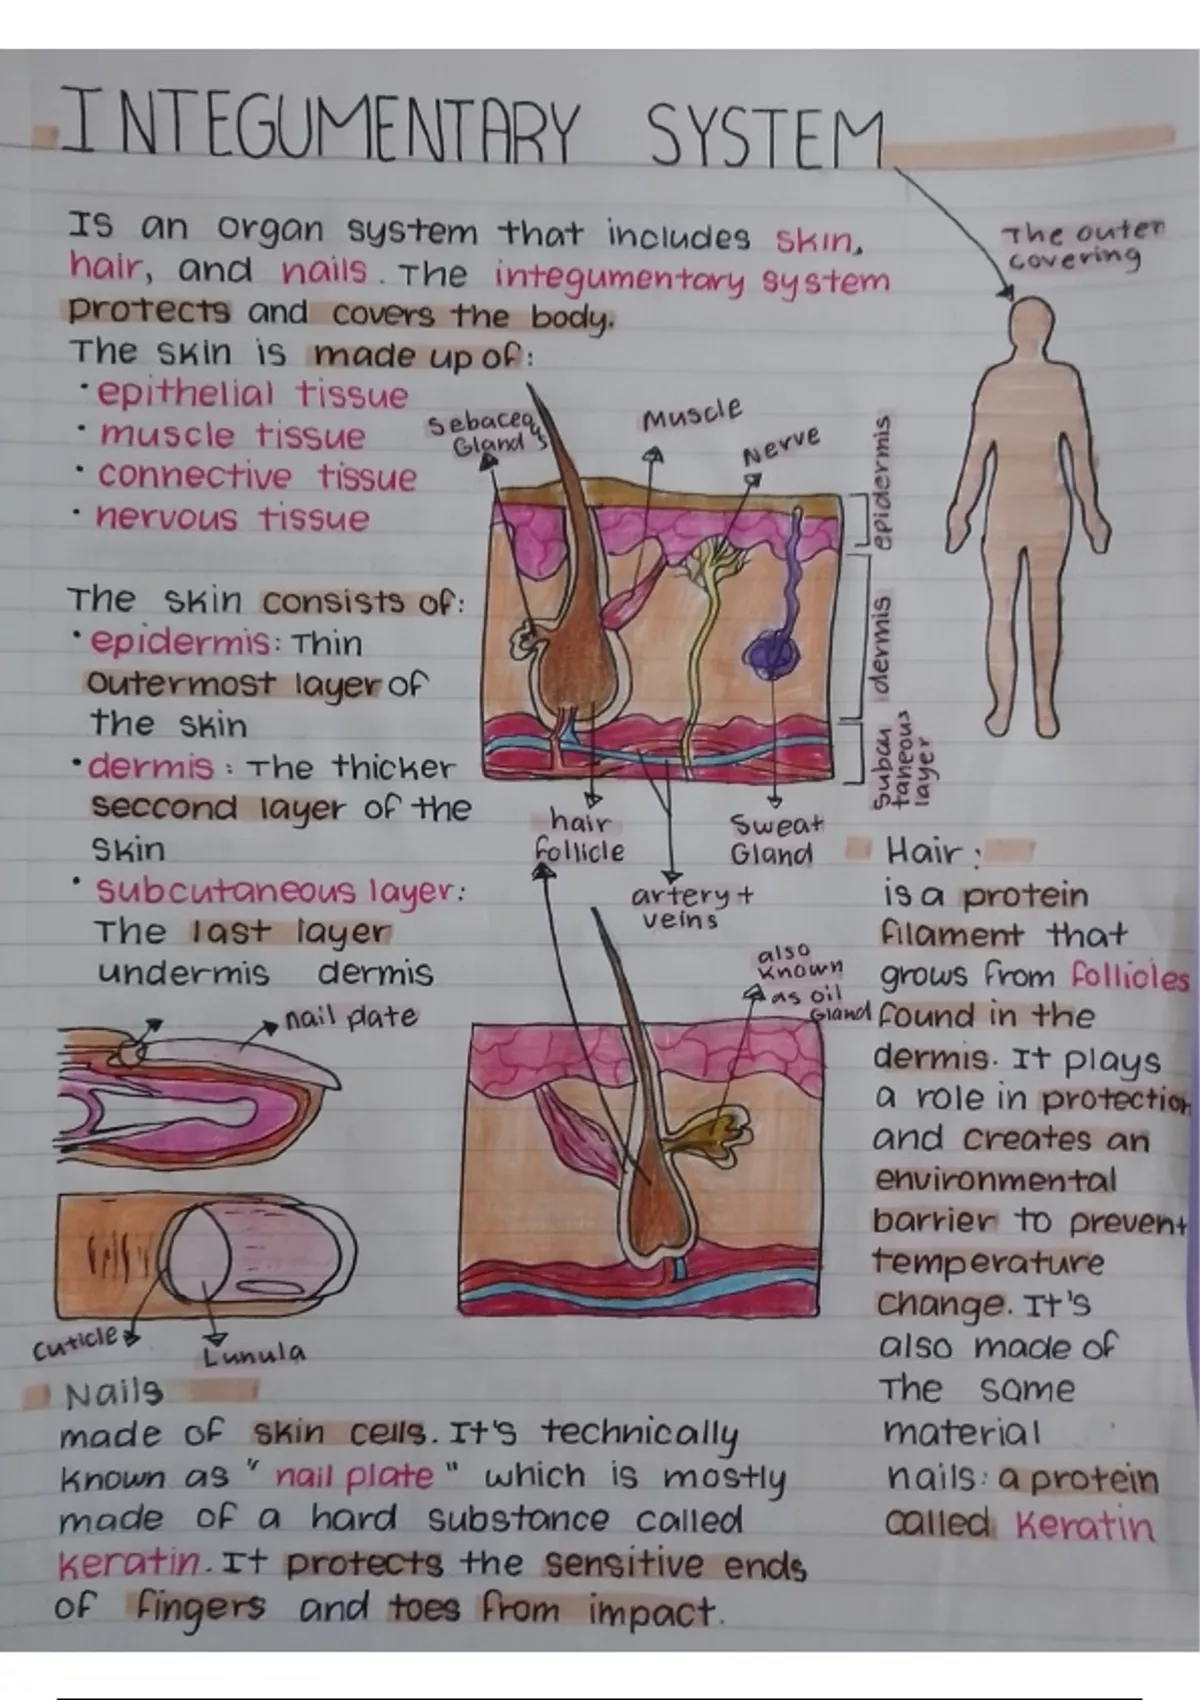 INTEGUMENTARY SYSTEM
The outer
covering
Is an organ system that includes skin,
hair, and nails. The integumentary system
protects and covers the body.
The skin is made up of:
• epithelial tissue
• muscle tissue
• connective tissue
• nervous tissue
Sebaceous
Gland
Muscle
Nerve
epidermis
dermis
Suban
taneous
layer
hair
follicle
artery +
veins
Sweat
Gland
The skin consists of:
• epidermis: Thin
outermost layer of
the skin
• dermis: The thicker
seccond layer of the
skin
• subcutaneous layer:
The last layer
undermis dermis
nail plate
Cuticle
Lunula
also
known
as oil
Gland
Hair:
is a protein
filament that
grows from follicles
found in the
dermis. It plays
a role in protection
and creates an
environmental
barrier to prevent
temperature
change. It's
also made of
The same
material
nails: a protein
called keratin
Nails
made of skin cells. It's technically
known as "nail plate" which is mostly
made of a hard substance called
keratin. It protects the sensitive ends
of fingers and toes from impact.